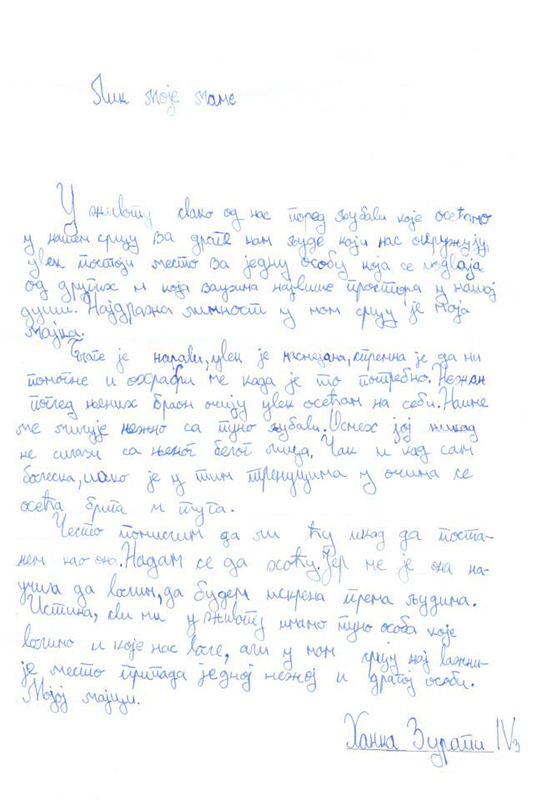 Лик моје маме
У животу свако од нас поред љубави које осећамо
у нашем срцу за драге нам људе који нас окружују,
увек постоји место за једну особу која се издваја
од других и која заузима највише простора у нашој
души. Најдража личност у мом срцу је моја
мајка.
је нарави, увек је насмејана, спремна је да ми
помогне и охрабри ме када је то потребно. Нежан
поглед њених браон очију увек осећам на себи. Њиме
ме милује нежно са пуно љубави. Осмех јој никад
не силази са њеног белог лица. Чак и кад сам
болесна, иако је у тим тренуцима у очима се
осећа брига и туга.
Често помислим да ли ћу икад да поста-
нем као она. Надам се да хоћу. Јер ме је она на-
учила да волим, да будем искрена према људима.
Истина, сви ми у животу имамо пуно особа које
волимо и које нас воле, али у мом срцу нај важни-
је место припада једној нежној и драгој особи.
Мојој мајци.
Ханка Зурапи IV3